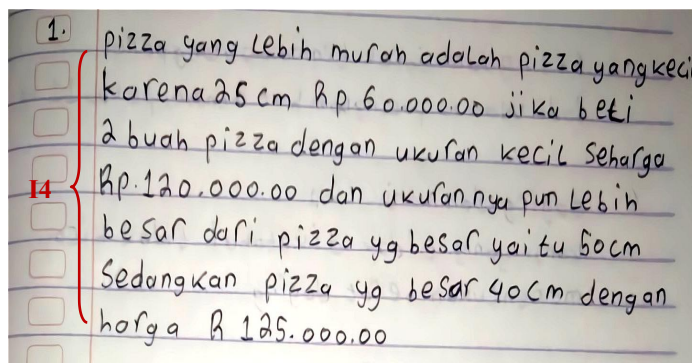 1.
pizza yang lebih murah adalah pizza yang keci
karena 25 cm Rp. 60.000.00 jika beli
2 buah pizza dengan ukuran kecil seharga
I4
Rp. 120.000.00 dan ukurannya pun lebih
besar dari pizza yg besar yaitu 50cm
sedangkan pizza yg besar 40cm dengan
harga R 125.000.00